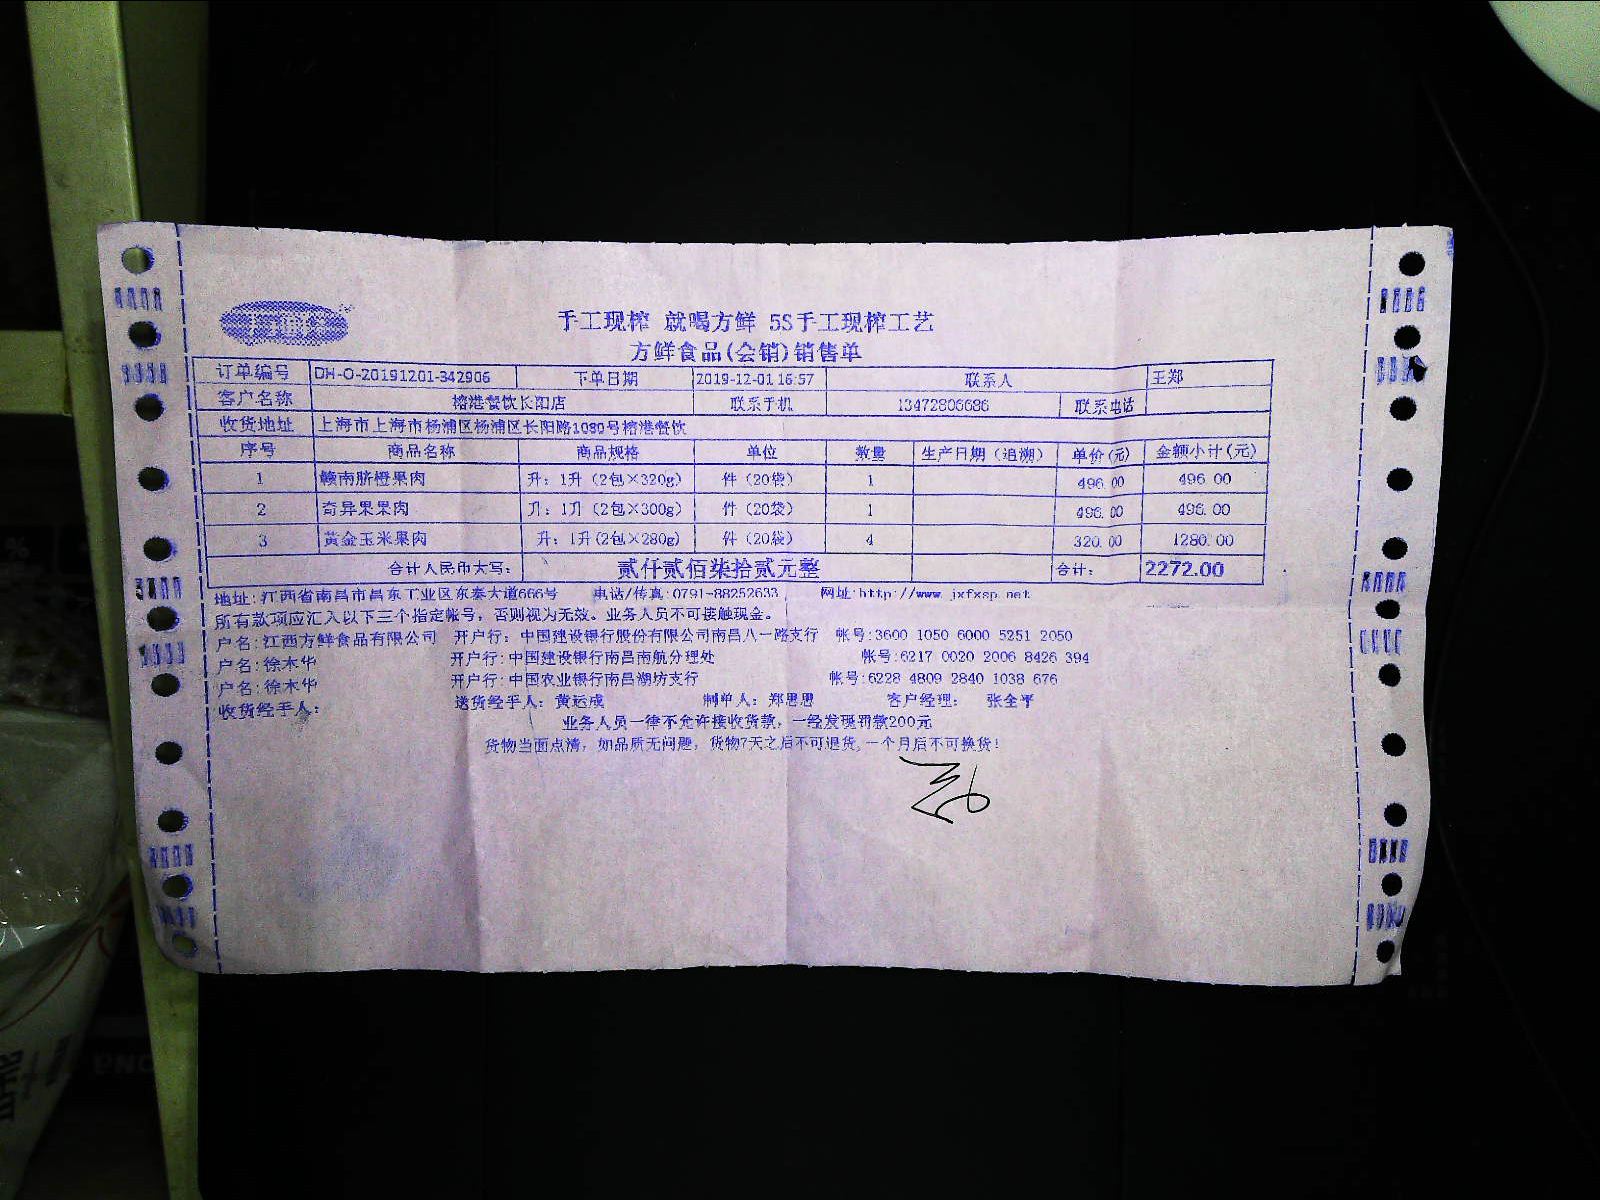 手工现榨 就喝方鲜 5S手工现榨工艺
方鲜食品(会销)销售单
订单编号 DH-O-20191201-342906 下单日期 2019-12-01 16:57 联系人 王郑
客户名称 榕港餐饮长阳店 联系手机 13472806686 联系电话
收货地址 上海市上海市杨浦区杨浦区长阳路1080号榕港餐饮
序号 商品名称 商品规格 单位 数量 生产日期（追溯） 单价(元) 金额小计(元)
1 赣南脐橙果肉 升：1升（2包×320g） 件（20袋） 1 496.00 496.00
2 奇异果果肉 升：1升（2包×300g） 件（20袋） 1 496.00 496.00
3 黄金玉米果肉 升：1升(2包×280g) 件（20袋） 4 320.00 1280.00
合计人民币大写： 贰仟贰佰柒拾贰元整 合计： 2272.00
地址:江西省南昌市昌东工业区东泰大道666号 电话/传真:0791-88252633 网址:http://www.jxfxsp.net
所有款项应汇入以下三个指定帐号，否则视为无效。业务人员不可接触现金。
户名:江西方鲜食品有限公司 开户行：中国建设银行股份有限公司南昌八一路支行 帐号:3600 1050 6000 5251 2050
户名:徐木华 开户行:中国建设银行南昌南航分理处 帐号:6217 0020 2006 8426 394
户名:徐木华 开户行:中国农业银行南昌湖坊支行 帐号:6228 4809 2840 1038 676
收货经手人： 送货经手人：黄运成 制单人：郑思思 客户经理： 张全平
业务人员一律不允许接收货款，一经发现罚款200元
货物当面点清，如品质无问题，货物7天之后不可退货,一个月后不可换货！